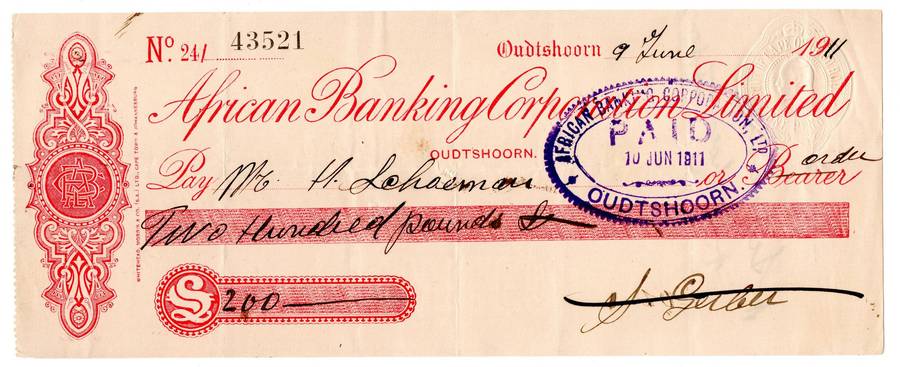 No. 24/ 43521
Oudtshoorn 9 June 1911
African Banking Corporation Limited
OUDTSHOORN.
Pay Mr. H. Schoeman or Bearer order
Two Hundred pounds
£ 200
S. Gerber
AFRICAN BANKING CORPORATION, LTD
PAID
10 JUN 1911
OUDTSHOORN.